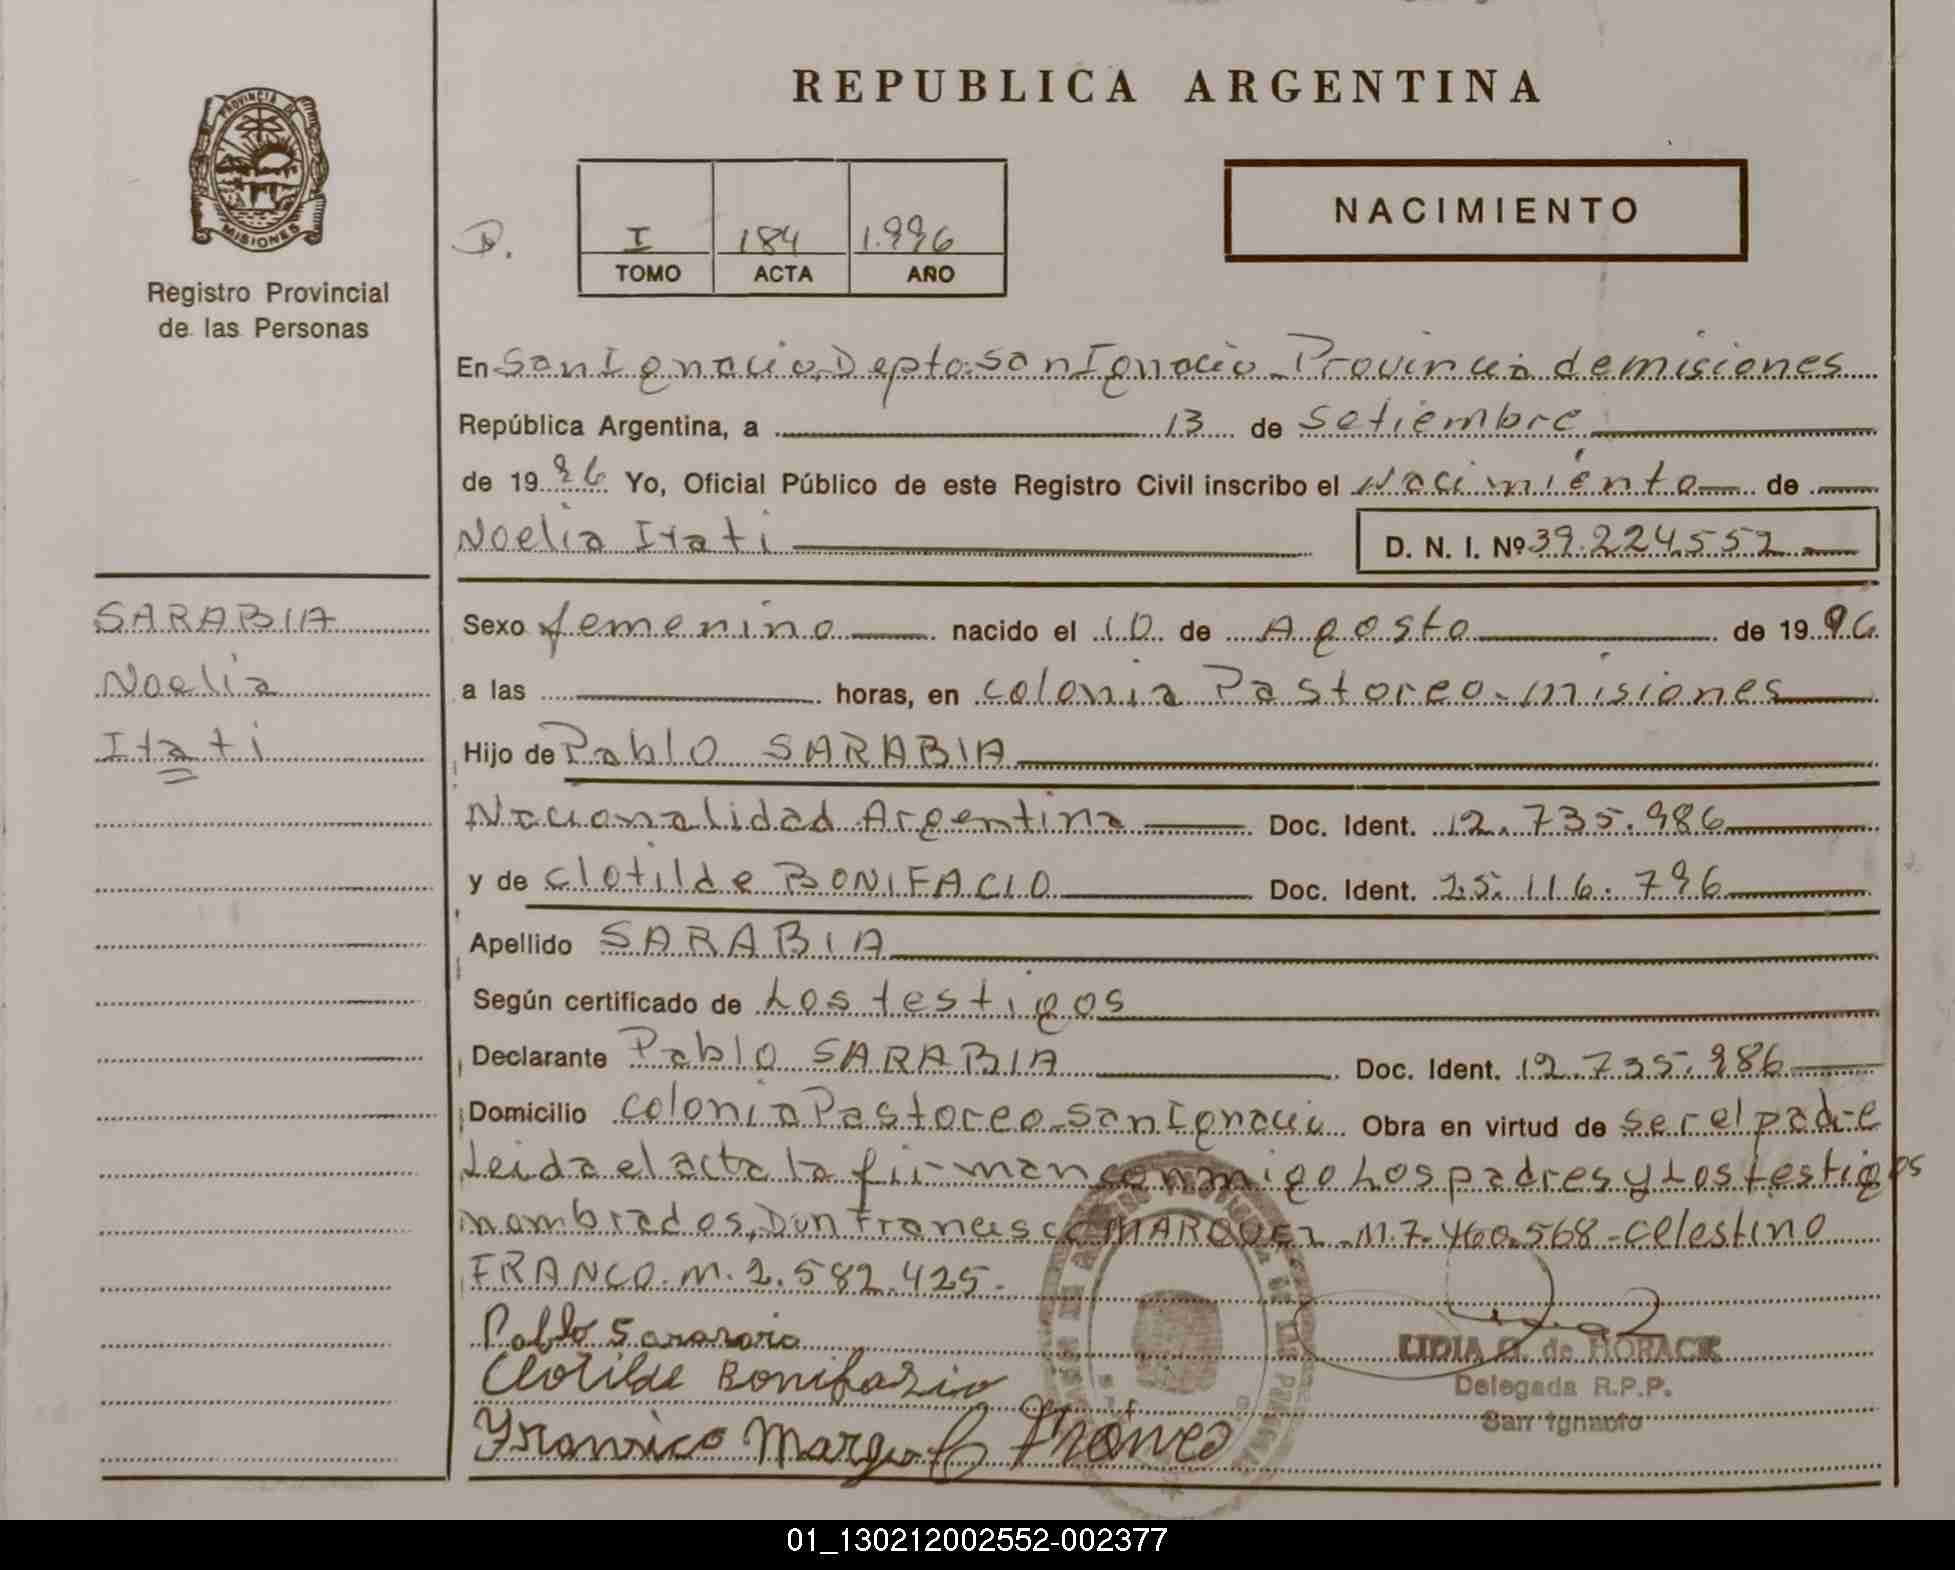 REPUBLICA ARGENTINA
PROVINCIA DE
MISIONES
Registro Provincial
de las Personas
I 184 1.996
TOMO ACTA AÑO
NACIMIENTO
En San Ignacio, Depto. San Ignacio - Provincia de misiones
República Argentina, a 13 de Setiembre
de 19 96 Yo, Oficial Público de este Registro Civil inscribo el Nacimiento de
Noelia Itati D. N. I. Nº 39.224.552
SARABIA
Noelia
Itati
Sexo femenino nacido el 10 de Agosto de 19 96
a las horas, en colonia Pastoreo - misiones
Hijo de Pablo SARABIA
Nacionalidad Argentina Doc. Ident. 12.735.986
y de Clotilde BONIFACIO Doc. Ident. 25.116.796
Apellido SARABIA
Según certificado de Los testigos
Declarante Pablo SARABIA Doc. Ident. 12.735.986
Domicilio colonia Pastoreo - San Ignacio Obra en virtud de ser el padre
Leida el acta la firman conmigo Los padres y Los testigos
nombrados, Don Francisco MARQUEZ - M. 7.460.568 - Celestino
FRANCO. M. 2.582.425 -
Pablo Sararoia
Clotilde Bonifasio
LIDIA G. de HORACK
Delegada R.P.P.
San Ignacio
Franrico Marque C Franco
01_130212002552-002377